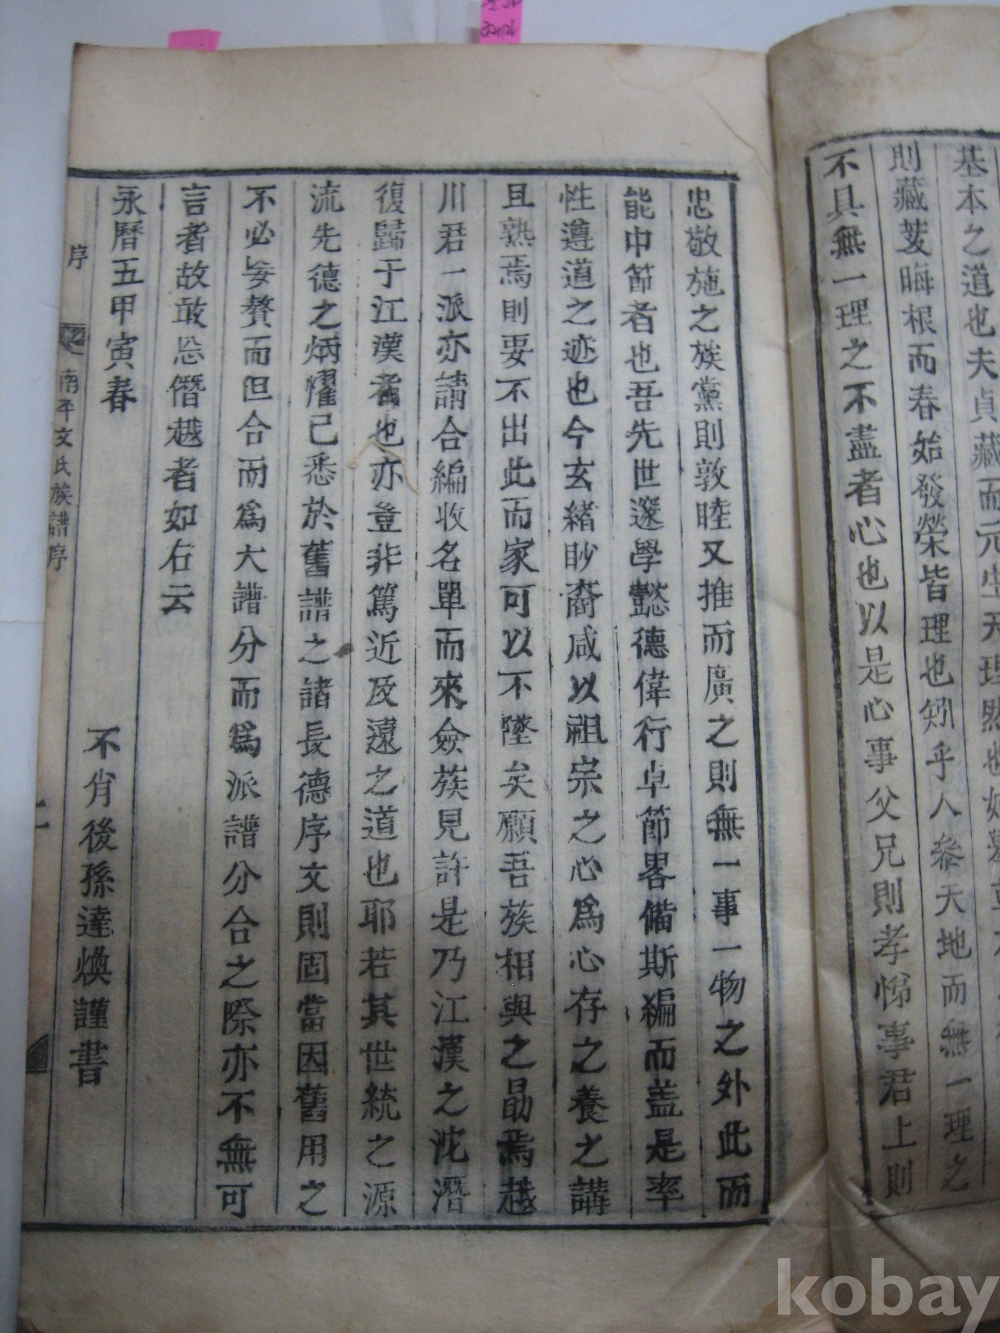 基本之道也夫貞藏而元生天理然也
則藏芰晦根而春始發榮皆理也矧乎人參天地而無一理之
不具無一理之不盡者心也以是心事父兄則孝悌事君上則
忠敬施之族黨則敦睦又推而廣之則無一事一物之外此而
能中節者也吾先世邃學懿德偉行卓節畧備斯編而盖是率
性遵道之迹也今玄緖眇裔咸以祖宗之心爲心存之養之講
且熟焉則要不出此而家可以不墜矣願吾族相與之勗焉越
川君一派亦請合編收名單而來僉族見許是乃江漢之沱潛
復歸于江漢者也亦豈非篤近及遠之道也耶若其世統之源
流先德之炳燿已悉於舊譜之諸長德序文則固當因舊用之
不必妄贅而但合而爲大譜分而爲派譜分合之際亦不無可
言者故敢忘僭越者如右云
永曆五甲寅春
不肖後孫達煥謹書
序
南平文氏族譜序
二
kobay